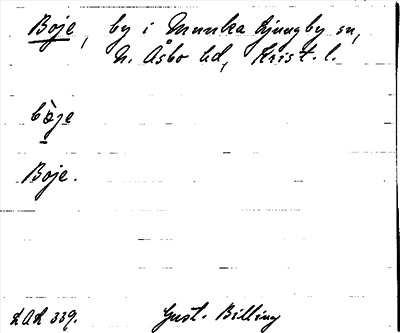 Böje, by i Munka Ljungby sn,
N. Åsbo hd, Krist. l.
bö̀je
Böje.
LAL 339.
Gust. Billing